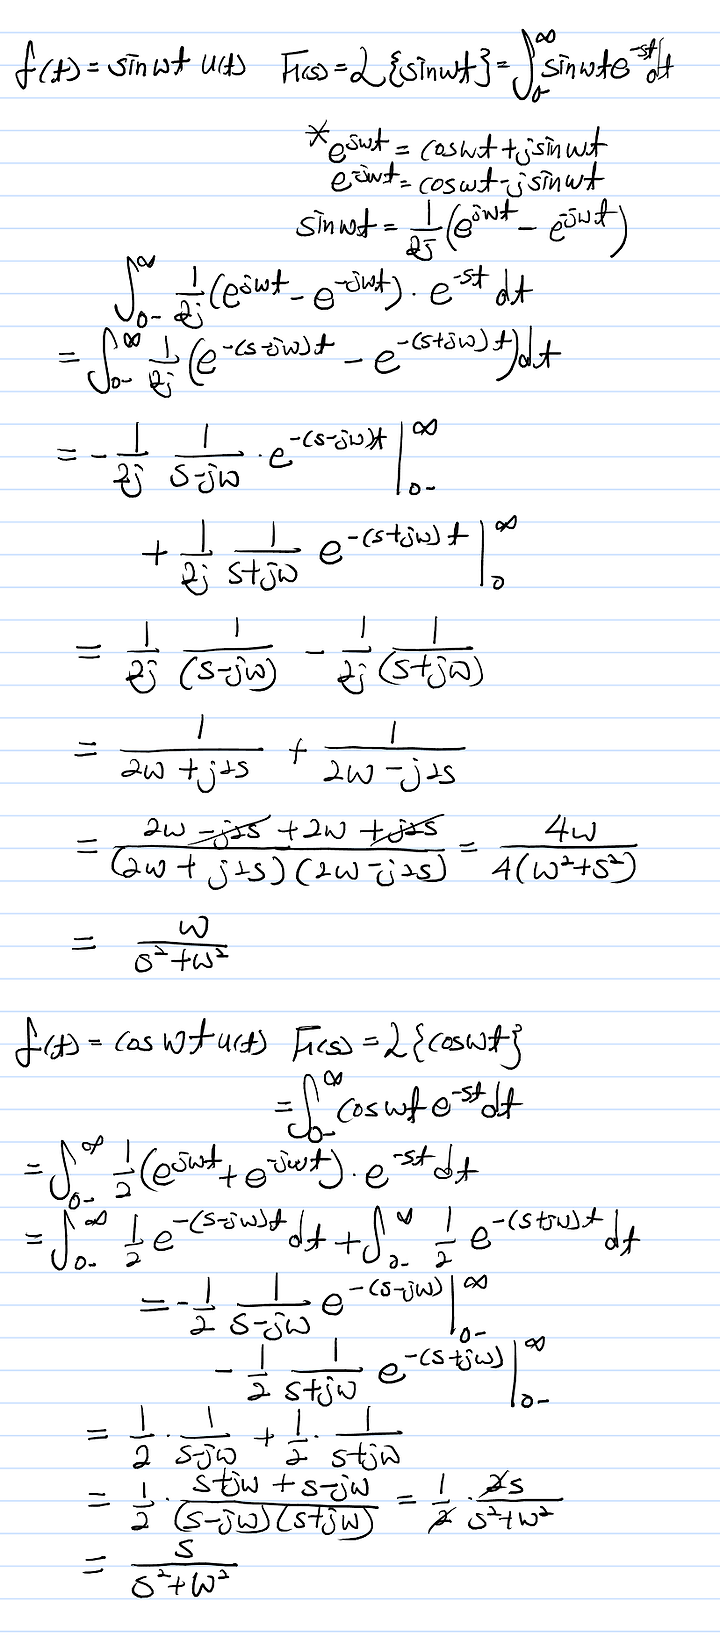 f(t) = sinωt u(t)   F(s) = L{sinωt} = ∫₀₋^∞ sinωt e^{-st} dt
* e^{jωt} = cosωt + j sinωt
e^{-jωt} = cosωt - j sinωt
sinωt = 1/2j (e^{jωt} - e^{-jωt})
∫₀₋^∞ 1/2j (e^{jωt} - e^{-jωt}) · e^{-st} dt
= ∫₀₋^∞ 1/2j (e^{-(s-jω)t} - e^{-(s+jω)t}) dt
= - 1/2j 1/(s-jω) · e^{-(s-jω)t} |₀₋^∞
+ 1/2j 1/(s+jω) e^{-(s+jω)t} |₀^∞
= 1/2j 1/(s-jω) - 1/2j 1/(s+jω)
= 1/(2ω+j2s) + 1/(2ω-j2s)
= (2ω-j2s+2ω+j2s)/((2ω+j2s)(2ω-j2s)) = 4ω/(4(ω²+s²))
= ω/(s²+ω²)
f(t) = cosωt u(t)   F(s) = L{cosωt}
= ∫₀₋^∞ cosωt e^{-st} dt
= ∫₀₋^∞ 1/2 (e^{jωt} + e^{-jωt}) · e^{-st} dt
= ∫₀₋^∞ 1/2 e^{-(s-jω)t} dt + ∫₀₋^∞ 1/2 e^{-(s+jω)t} dt
= - 1/2 1/(s-jω) e^{-(s-jω)} |₀₋^∞
- 1/2 1/(s+jω) e^{-(s+jω)} |₀₋^∞
= 1/2 · 1/(s-jω) + 1/2 · 1/(s+jω)
= 1/2 · (s+jω+s-jω)/((s-jω)(s+jω)) = 1/2 · 2s/(s²+ω²)
= s/(s²+ω²)